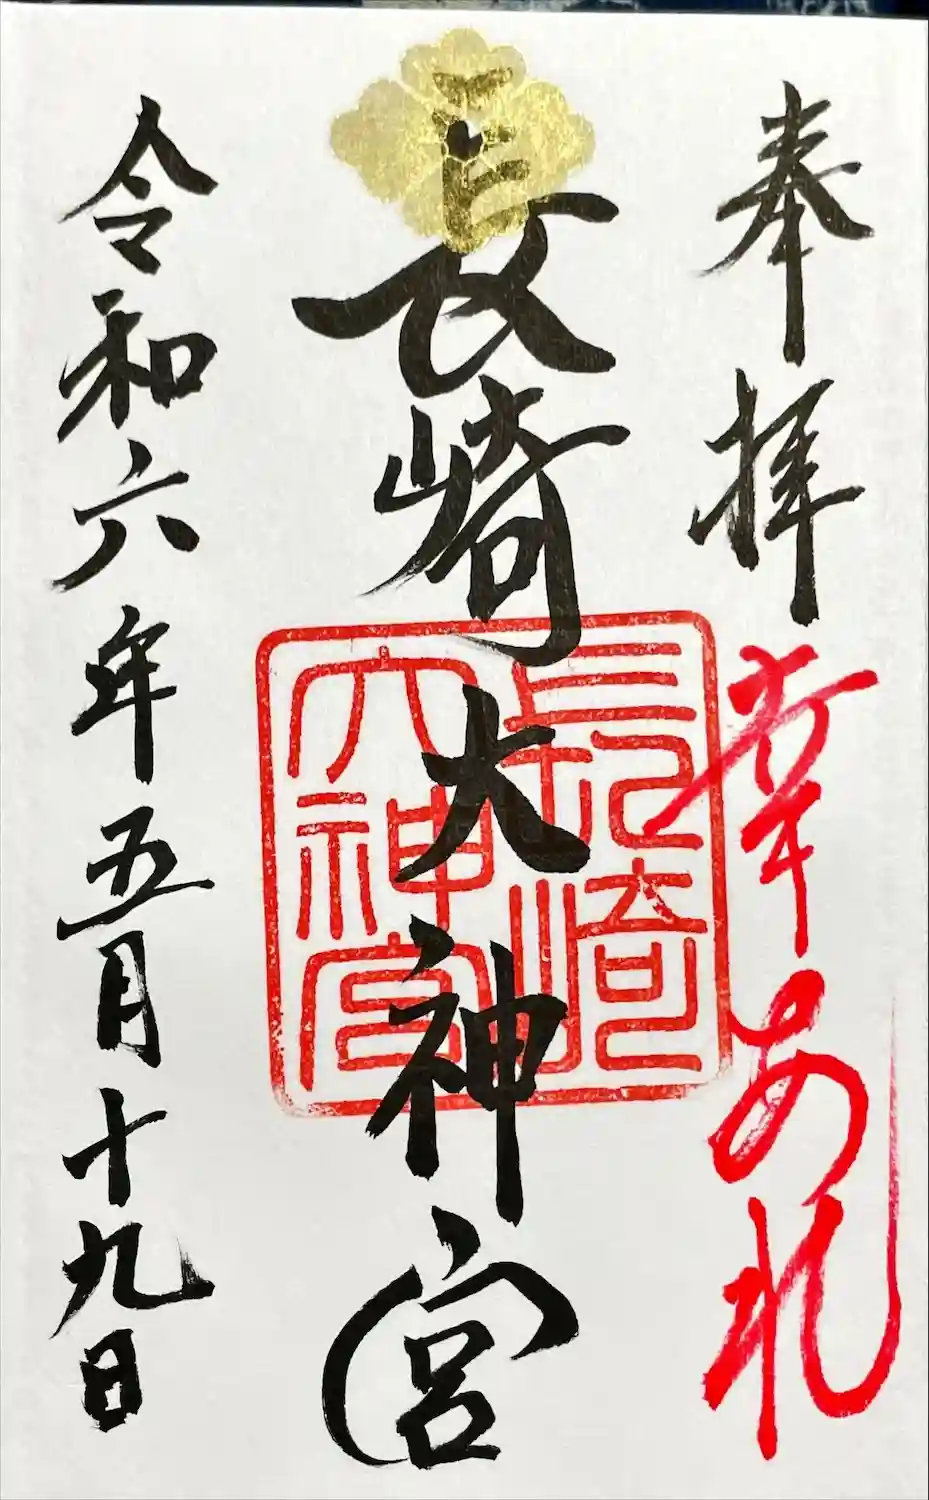 奉拝
幸あれ
長崎大神宮
長崎
大神宮
令和六年五月十九日